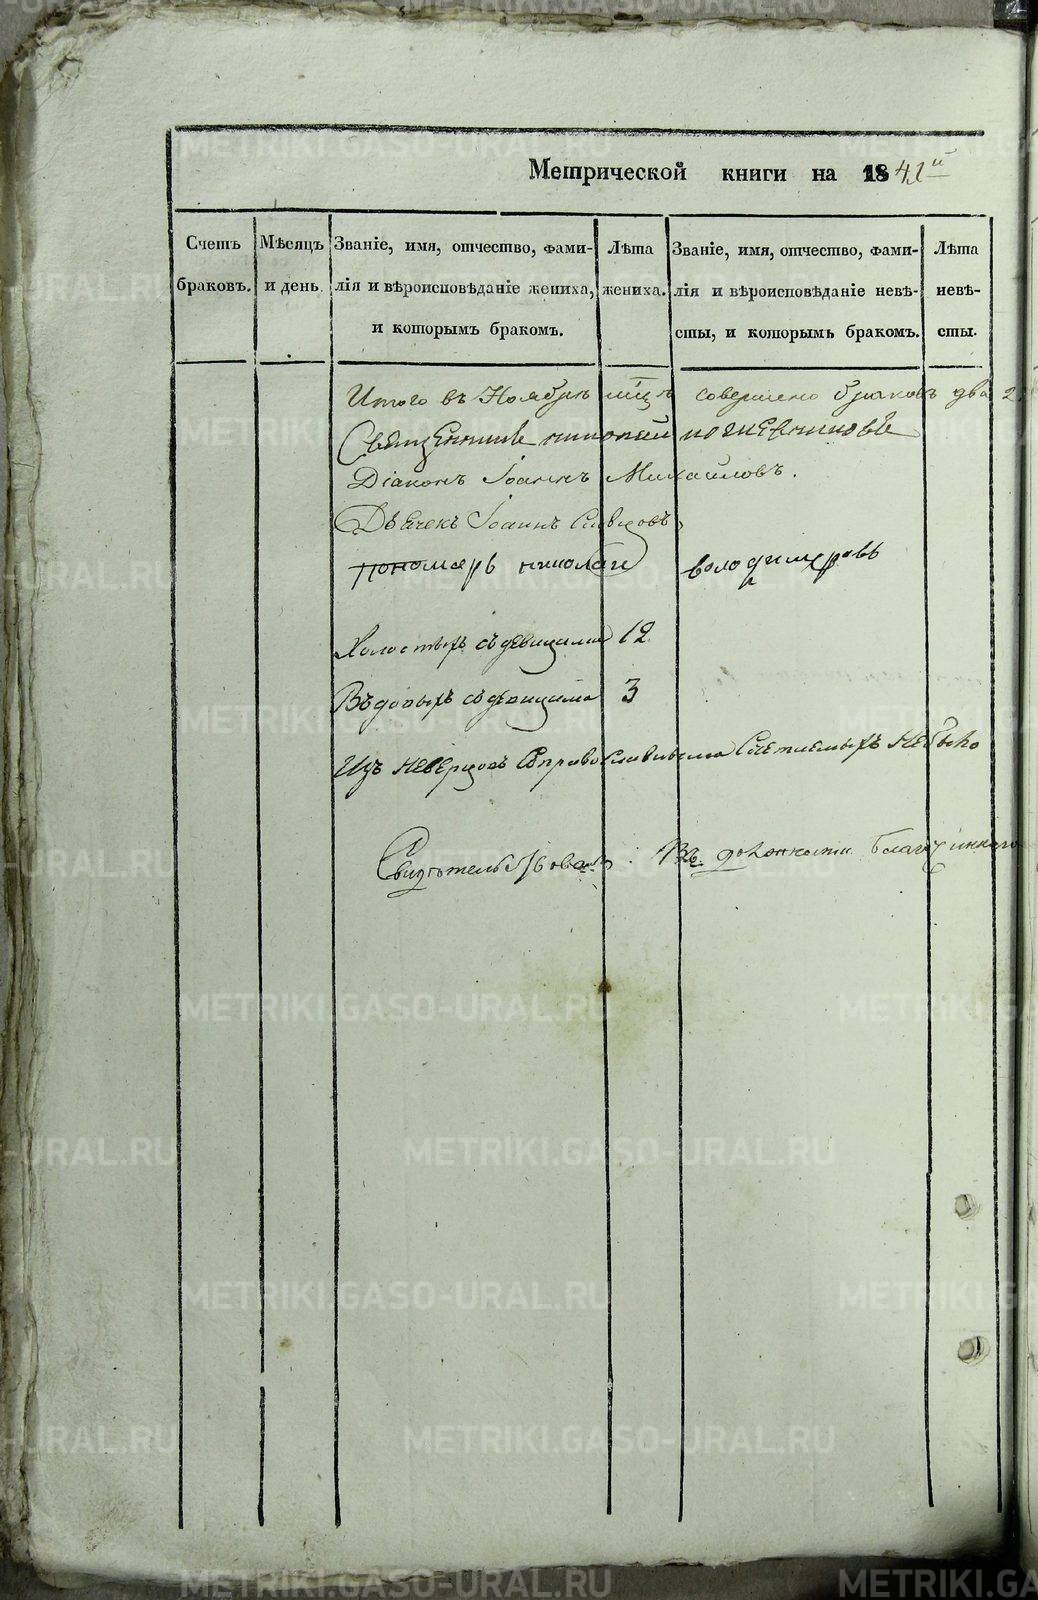 Метрической книги на 1841й
Счетъ браковъ.
Мѣсяцъ и день.
Званіе, имя, отчество, фами-
лія и вѣроисповѣданіе жениха,
и которымъ бракомъ.
Лѣта
жениха.
Званіе, имя, отчество, фами-
лія и вѣроисповѣданіе невѣ-
сты, и которымъ бракомъ.
Лѣта
невѣ-
сты.
Итого въ Ноябрѣ мцѣ совершено браковъ два 2.
Священникъ николай
Діаконъ Іоаннъ Михайловъ.
Дьячекъ Іоаннъ
пономарь николай володимеровъ
Холостыхъ съ девицами 12
Въдовыхъ съ девицами 3
Изъ неверцовъ справославными Счетаемыхъ Небыло
Свидѣтельствовалъ. Въ должности благочиннаго
METRIKI.GASO-URAL.RU